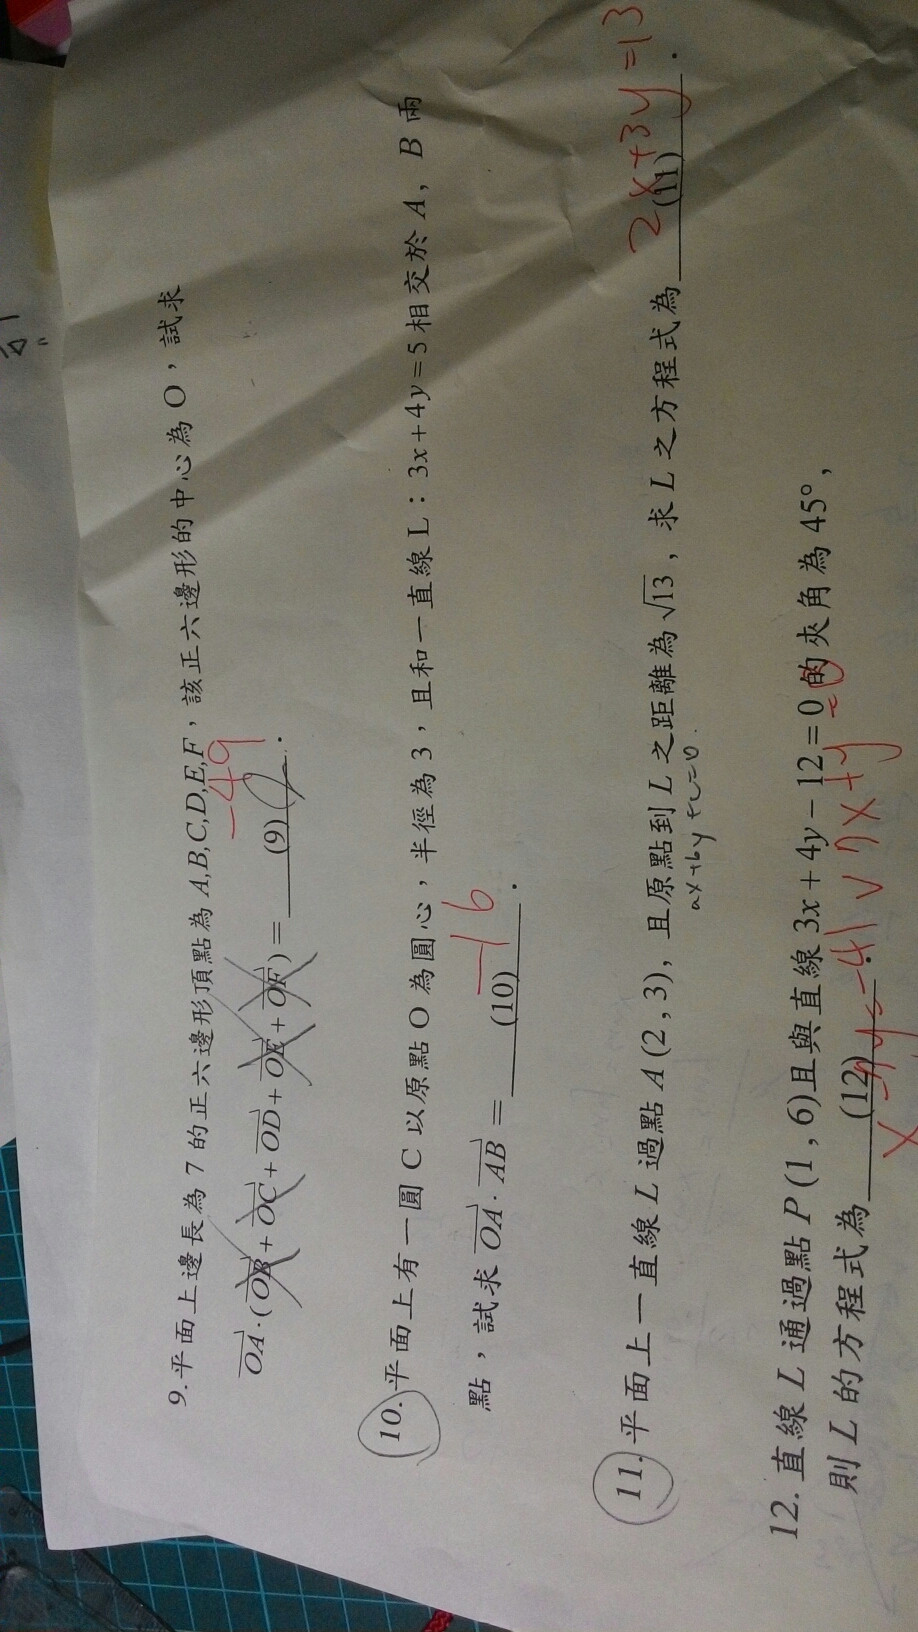 9.平面上邊長為 7 的正六邊形頂點為 A,B,C,D,E,F，該正六邊形的中心為 O，試求
OA·(OB+OC+OD+OE+OF)= (9) .
-49
10.平面上有一圓 C 以原點 O 為圓心，半徑為 3，且和一直線 L：3x+4y=5 相交於 A，B 兩
點，試求 OA·AB= (10) .
-16
11.平面上一直線 L 過點 A(2,3)，且原點到 L 之距離為√13，求 L 之方程式為 (11) .
2x+3y=13
ax+by+c=0
12.直線 L 通過點 P(1,6)且與直線 3x+4y-12=0 的夾角為 45°，
則 L 的方程式為 (12) .
x-7y=-41 ∨ 7x+y